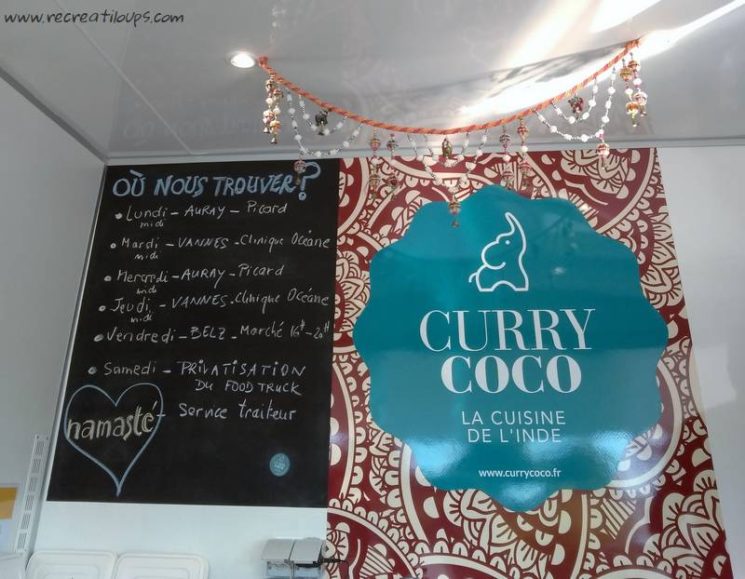 www.recreatiloups.com
OÙ NOUS TROUVER ?
• Lundi - AURAY - Picard
midi
• Mardi - VANNES - Clinique Océane
midi
• Mercredi - AURAY - Picard
midi
• Jeudi - VANNES - Clinique Océane
midi
• Vendredi - BELZ - Marché 16H - 20H
• Samedi - PRIVATISATION
DU FOOD TRUCK
- Service traiteur
namasté
CURRY
COCO
LA CUISINE
DE L'INDE
www.currycoco.fr